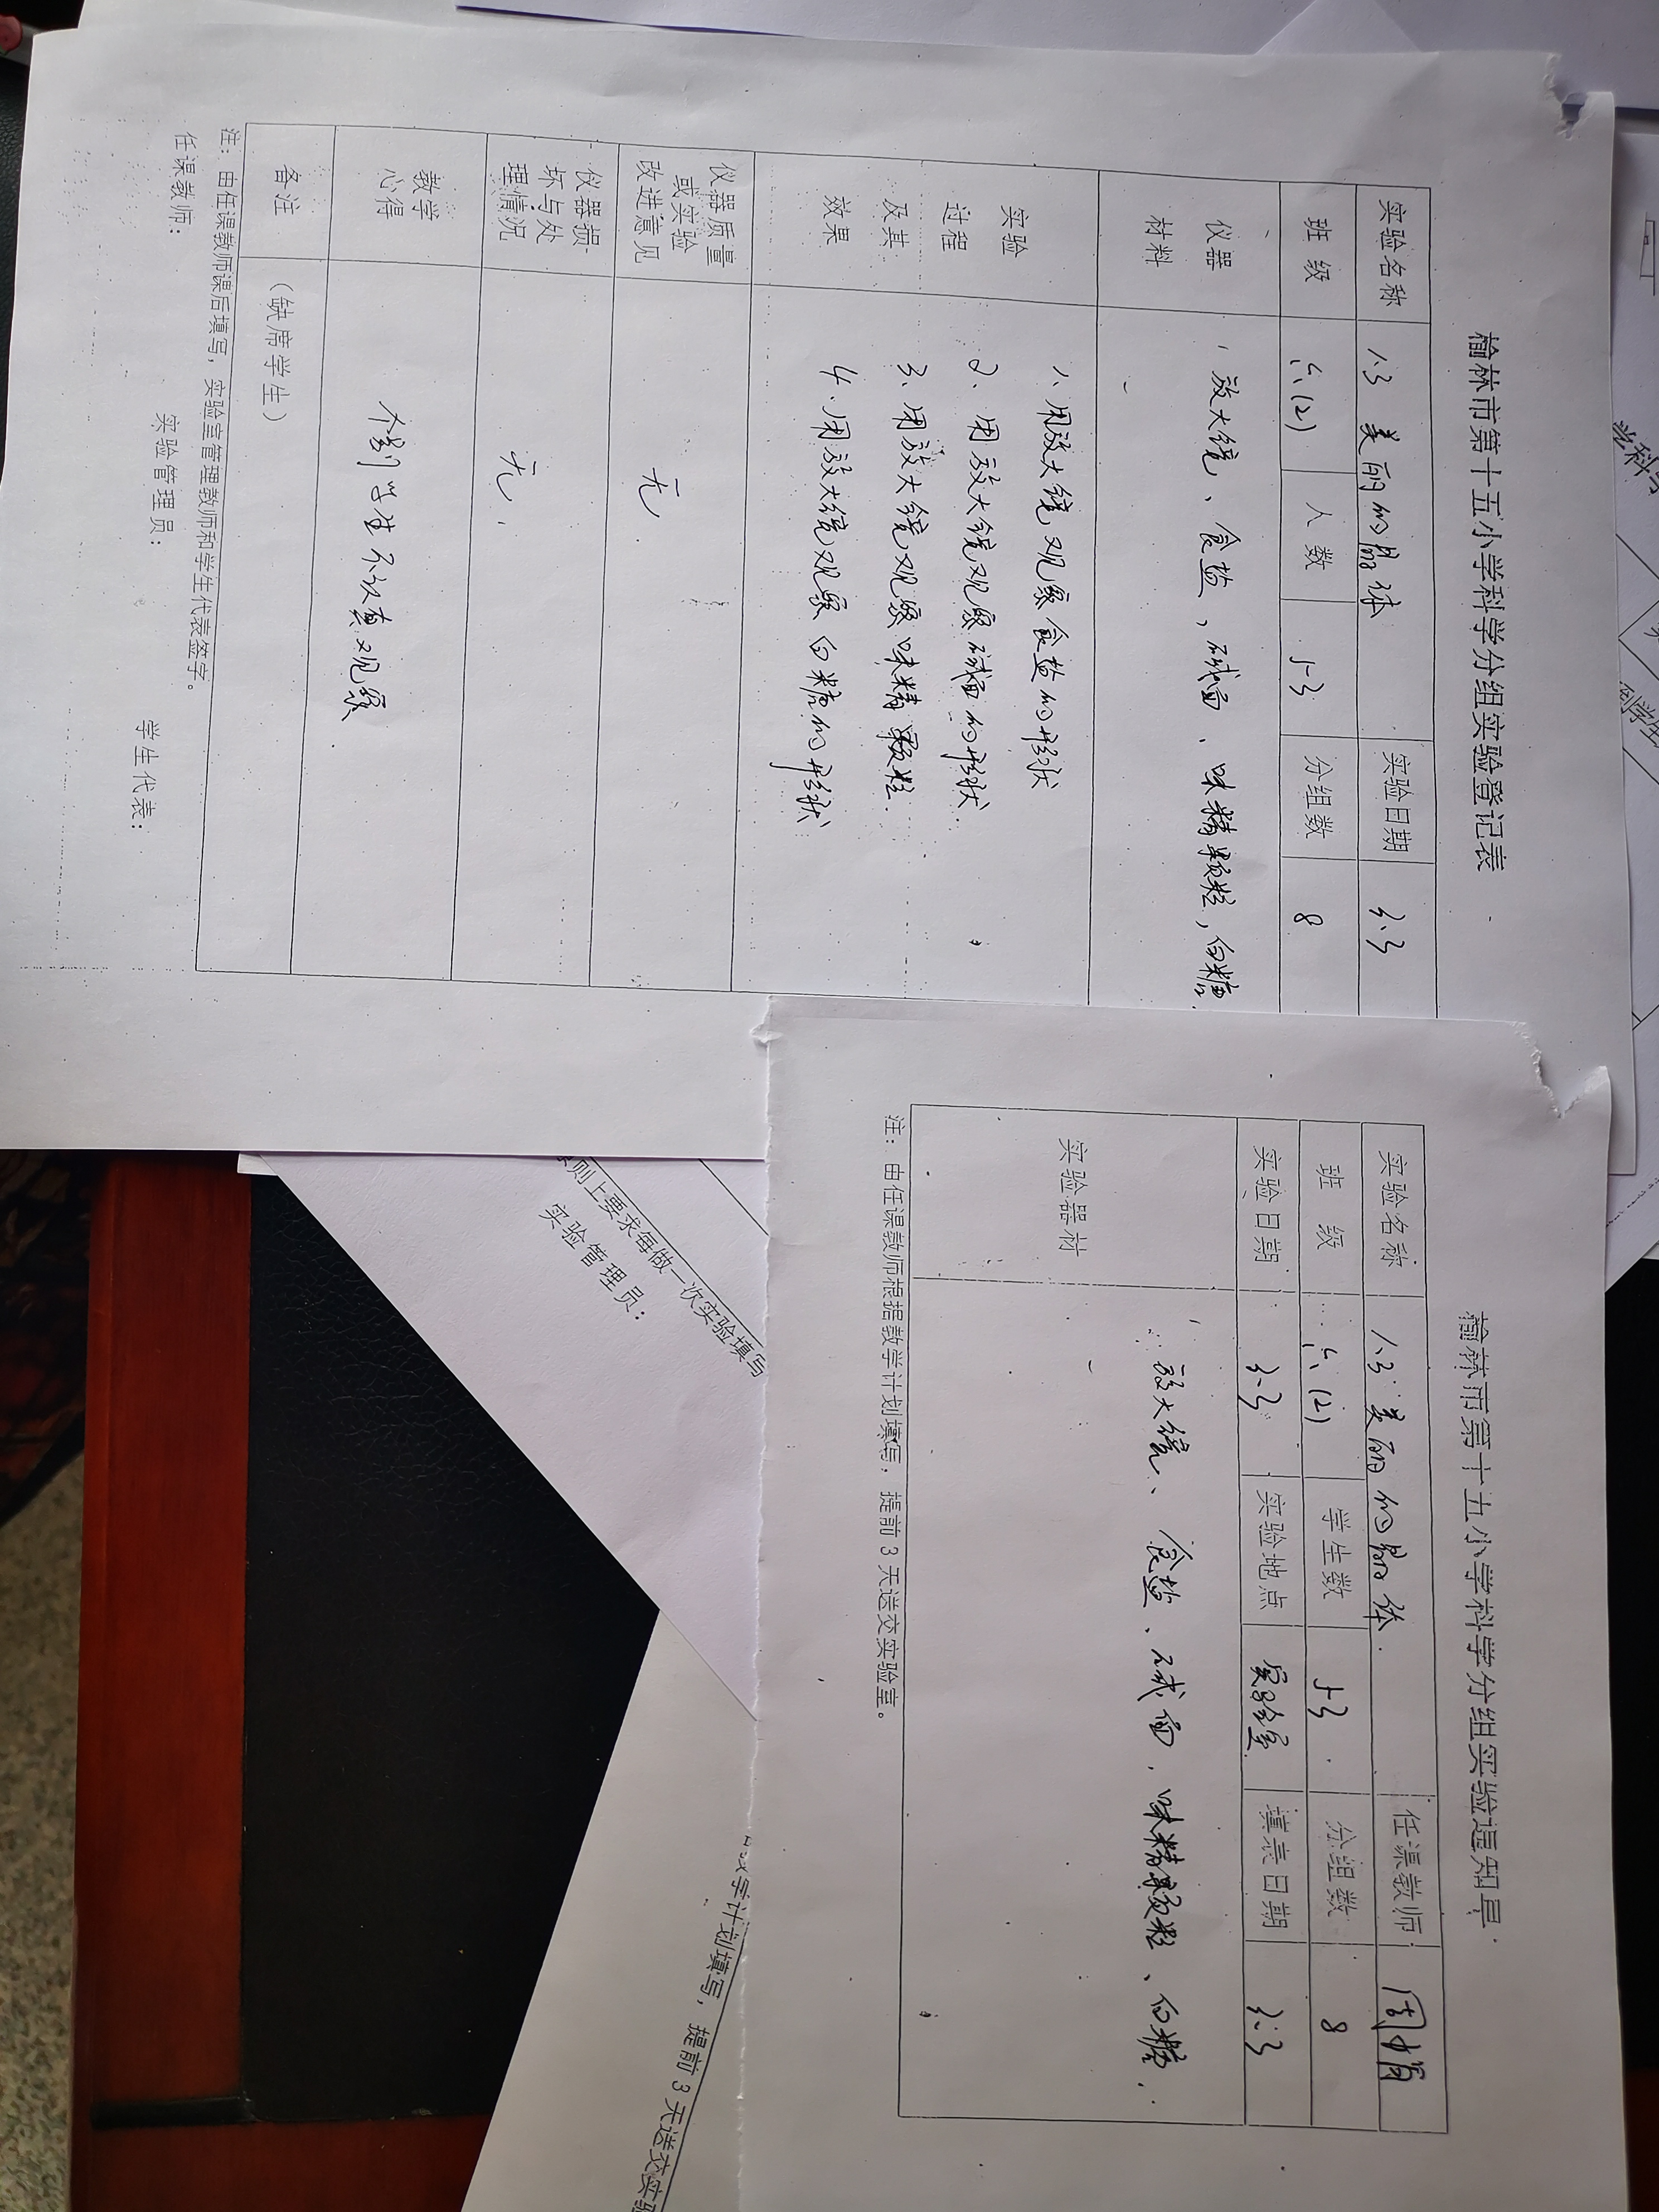 榆林市第十五小学科学分组实验登记表
实验名称 1.3 美丽的晶体 实验日期 3.3
班 级 六.(2) 人 数 53 分组数 8
仪器 材料 放大镜、食盐,碱面、味精颗粒,白糖
实验 过程 及其 效果
1、用放大镜观察食盐的形状
2、用放大镜观察碱面的形状.
3、用放大镜观察味精颗粒.
4、用放大镜观察白糖的形状
仪器质量 或实验 改进意见 无.
仪器损 坏与处 理情况 无.
教学 心得 个别学生不认真观察.
备注 (缺席学生)
注:由任课教师课后填写,实验室管理教师和学生代表签字。
任课教师: 实验管理员: 学生代表:
榆林市第十五小学科学分组实验通知单
实验名称 1.3 美丽的晶体. 任课教师
班 级 六.(2) 学生数 53. 分组数 8
实验日期 3.3 实验地点 实验室. 填表日期 3.3
实验器材 放大镜、食盐、碱面,味精颗粒、白糖.
注:由任课教师根据教学计划填写,提前 3 天送交实验室。
则上要求每做一次实验填写
实验管理员:
学计划填写,提前 3 天送交实验